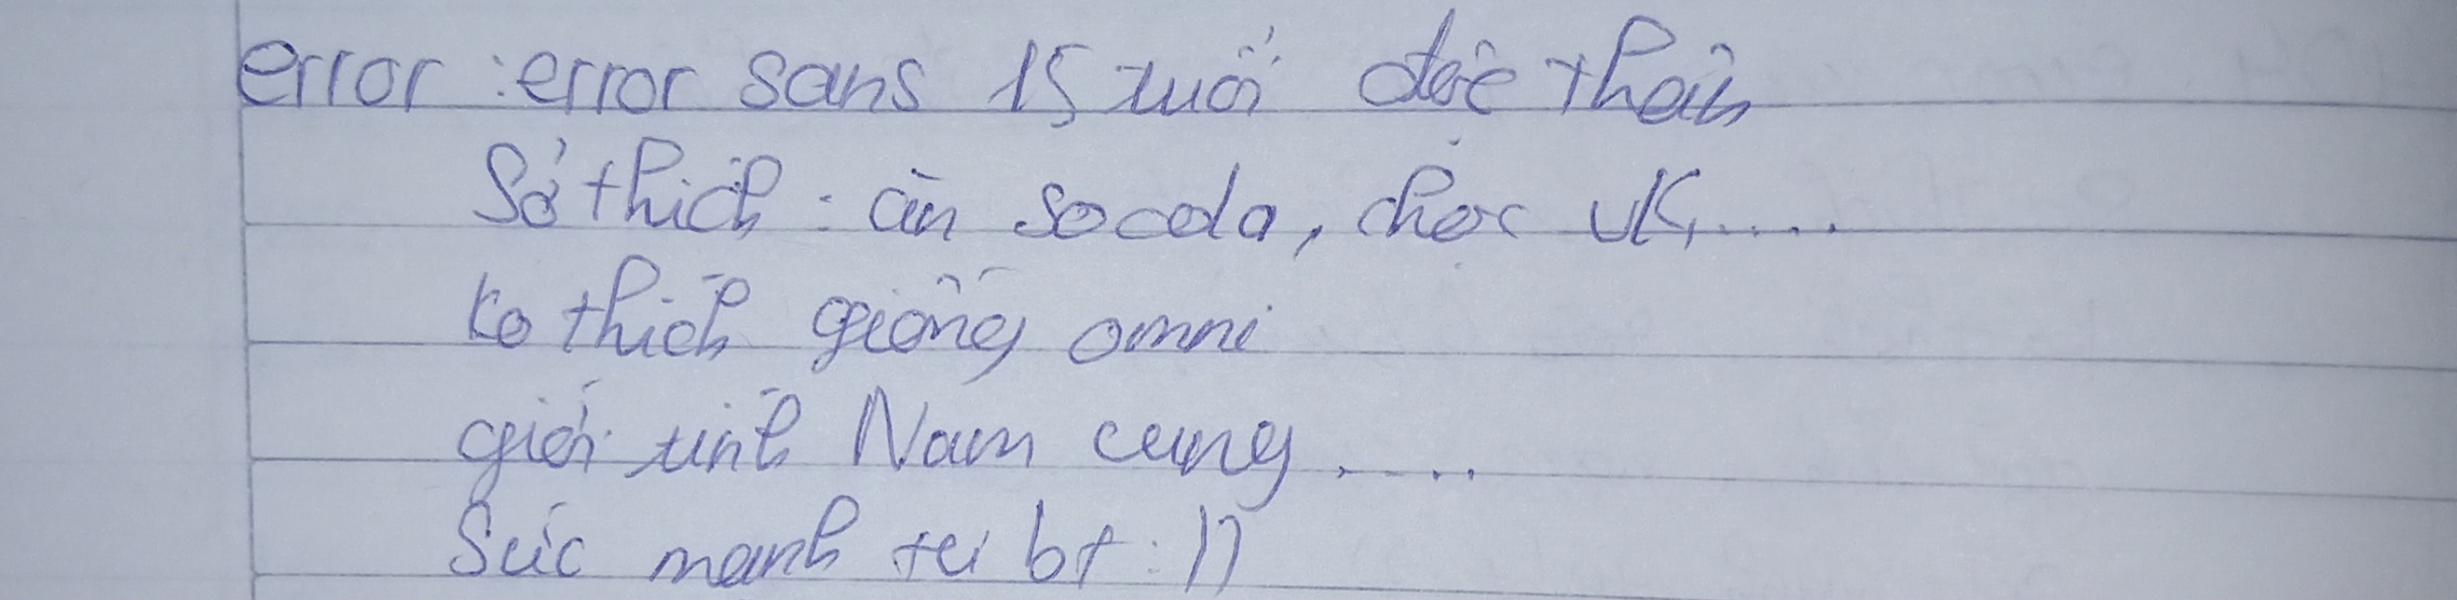 error : error sans 15 tuổi độc thân
Sở thích : ăn socola, chọc vk,....
ko thích giống omni
giới tính Nam cung ....
Sức mạnh tự bt : ))